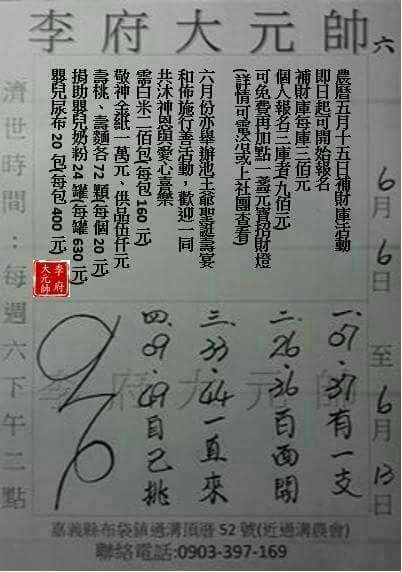 李府大元帥
六
6月6日至6月13日
農曆五月十五日補財庫活動
即日起可開始報名
補財庫每庫三佰元
個人報名三庫者九佰元
可免費再加點一盞元寶招財燈
(詳情可電洽或上社團查看)
六月份亦舉辦池王爺聖誕壽宴
和佈施行善活動，歡迎一同
共沐神恩與愛心喜樂
需白米二佰包(每包160元)
敬神金紙一萬元、供品伍仟元
壽桃、壽麵各72顆(每個20元)
捐助嬰兒奶粉24罐(每罐630元)
嬰兒尿布20包(每包400元)
李府大元帥
一.07.37有一支
二.26.36百面開
三.33.44一直來
四.09.49自己挑
李府大元帥
濟世時間：每週六下午二點
嘉義縣布袋鎮過溝頂厝52號(近過溝農會)
聯絡電話:0903-397-169